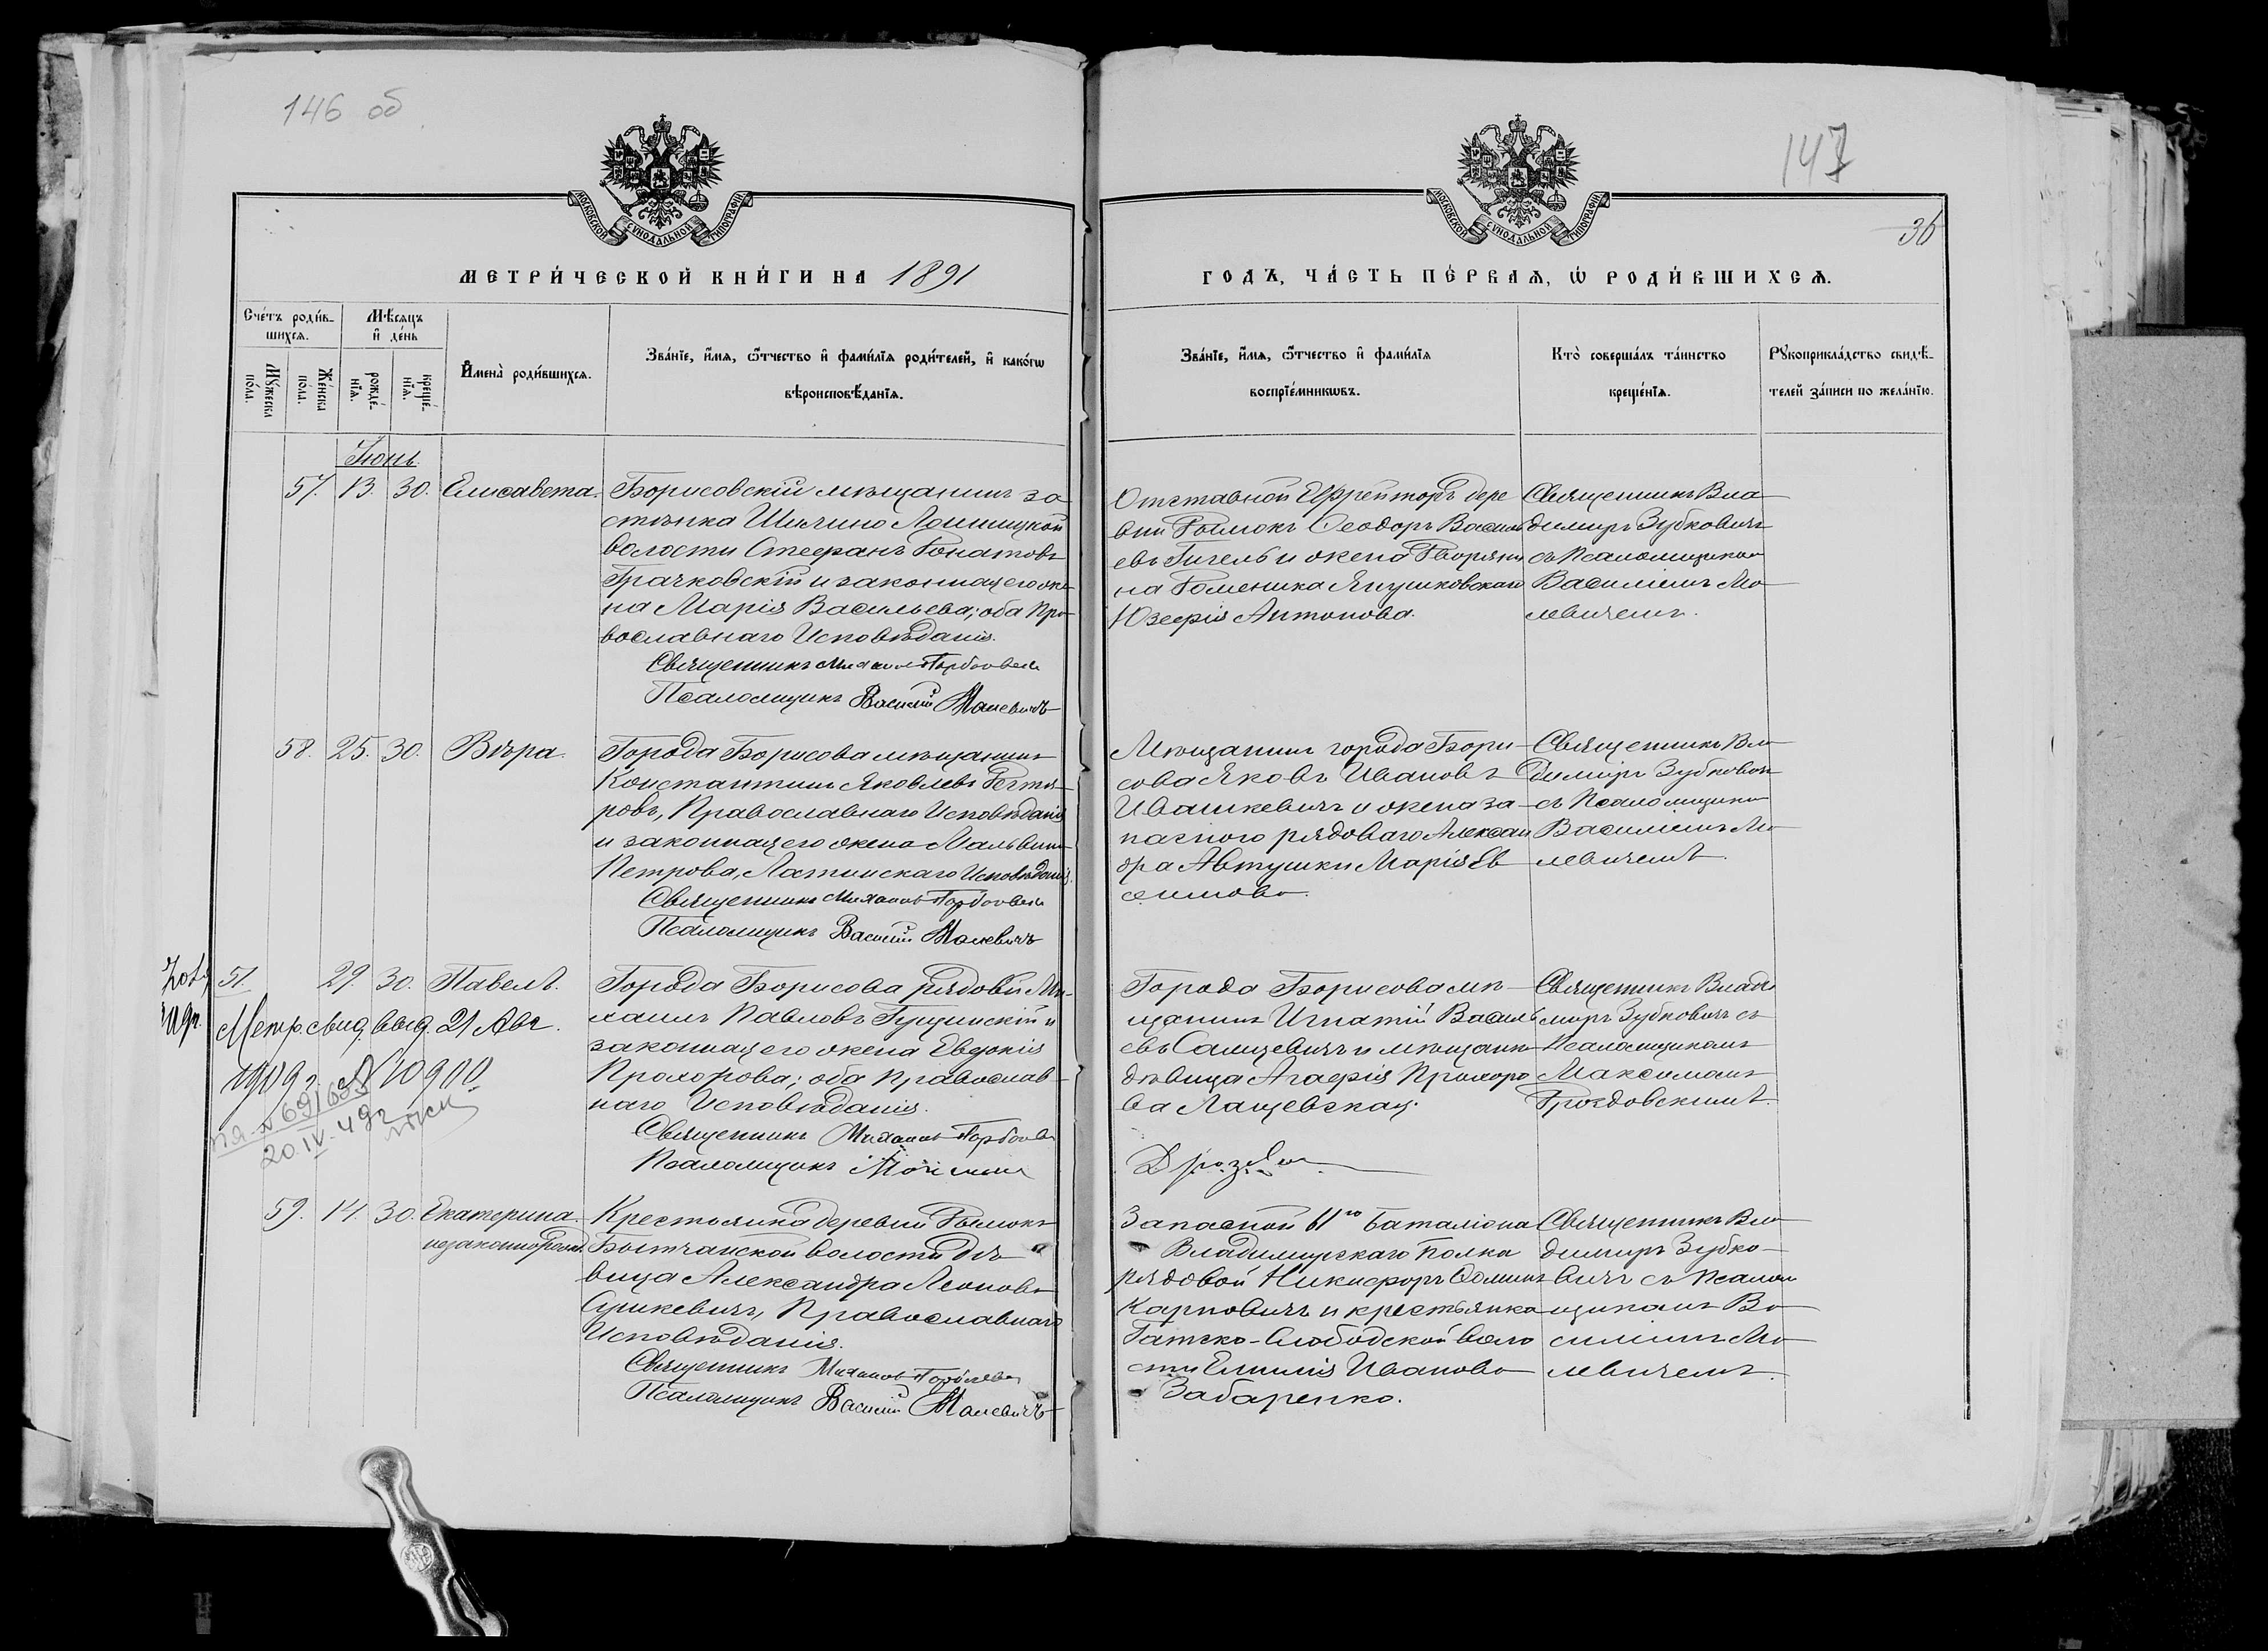 146 об
147
36
МОСКОВСКОЙ СѴНОДАЛЬНОЙ ТИПОГРАФІИ
МОСКОВСКОЙ СѴНОДАЛЬНОЙ ТИПОГРАФІИ
МЕТРИ́ЧЕСКОЙ КНИ́ГИ НА 1891
ГОДЪ, ЧА́СТЬ ПЕ́РВАѦ, Ѡ҆ РОДИ́ВШИХСѦ.
Сче́тъ роди́в-
шихсѧ.
Мѣ́сѧцъ
и҆ де́нь
Мꙋ́жеска
по́ла.
Же́нска
по́ла.
рожде́-
нїѧ.
креще́-
нїѧ.
И҆мена̀ роди́вшихсѧ.
Зва́нїе, и҆́мѧ, ѻ҆́тчество и҆ фами́лїѧ роди́телей, и҆ како́гѡ
вѣроисповѣ́данїѧ.
Зва́нїе, и҆́мѧ, ѻ҆́тчество и҆ фами́лїѧ
воспрїе́мникѡвъ.
Кто̀ соверша́лъ та́инство
креще́нїѧ.
Рꙋкоприкла́дство свидѣ́-
телей за́писи по жела́нїю.
Іюнь.
57. 13. 30. Елисавета.
Борисовскій мѣщанинъ за
стѣнка
волости Стефанъ
Грачковскій и законная его же-
на Марія Васильева; оба пра-
вославнаго Исповѣданія.
Священникъ Михаилъ
Псаломщикъ Василій Малевичъ
Отставной Ефрейторъ дере
вни Рымокъ Ѳеодоръ Василь
евъ и жена Дворяни
на Янушковскаго
Юзефія Антонова.
Священникъ Вла
димиръ Зубковичъ
съ Псаломщикомъ
Василіемъ Ма
левичемъ.
58. 25. 30. Вѣра.
Города Борисова мѣщанинъ
Константинъ Яковлевъ Дегтя-
ровъ, Православнаго Исповѣданія
и законная его жена Мальвина
Петрова, Латинскаго Исповѣданія.
Священникъ Михаилъ
Псаломщикъ Василій Малевичъ
Мѣщанинъ города Бори-
сова Яковъ Ивановъ
Ивашкевичъ и жена за-
паснаго рядоваго Алексан
дра Автушки Марія Ев
сѣимова.
Священникъ Вла
димиръ Зубкович
съ Псаломщикомъ
Василіемъ Ма
левичемъ.
51. 29. 30. Павелъ.
Метр. свид. выд. 21 Авг.
1909 г. № 10900
20.IV.49г
Города Борисова рядовой Ми-
хаилъ Павловъ и
законная его жена Евдокія
Прохорова; оба православ-
наго Исповѣданія.
Священникъ Михаилъ
Псаломщикъ
Города Борисова мѣ-
щанинъ Игнатій Василь
евъ и мѣщанка
дѣвица Агафія Прохоро
ва Лащевская.
Священникъ Влади
миръ Зубковичъ съ
Псаломщикомъ
Максимомъ
59. 14. 30. Екатерина.
незаконнорожд.
Крестьянка деревни Рымокъ
Бытчанской волости дѣ-
вица Александра Леонова
Сушкевичъ, Православнаго
Исповѣданія.
Священникъ Михаилъ
Псаломщикъ Василій Малевичъ
Запасной 61го баталіона
Владимірскаго полка
рядовой Никифоръ
Карповичъ и крестьянка
Гатско-Слободской воло
сти Емилія Иванова
Забаренко.
Священникъ Вла
димиръ Зубко-
вичъ съ Псалом
щикомъ Ва
силіемъ Ма
левичемъ.